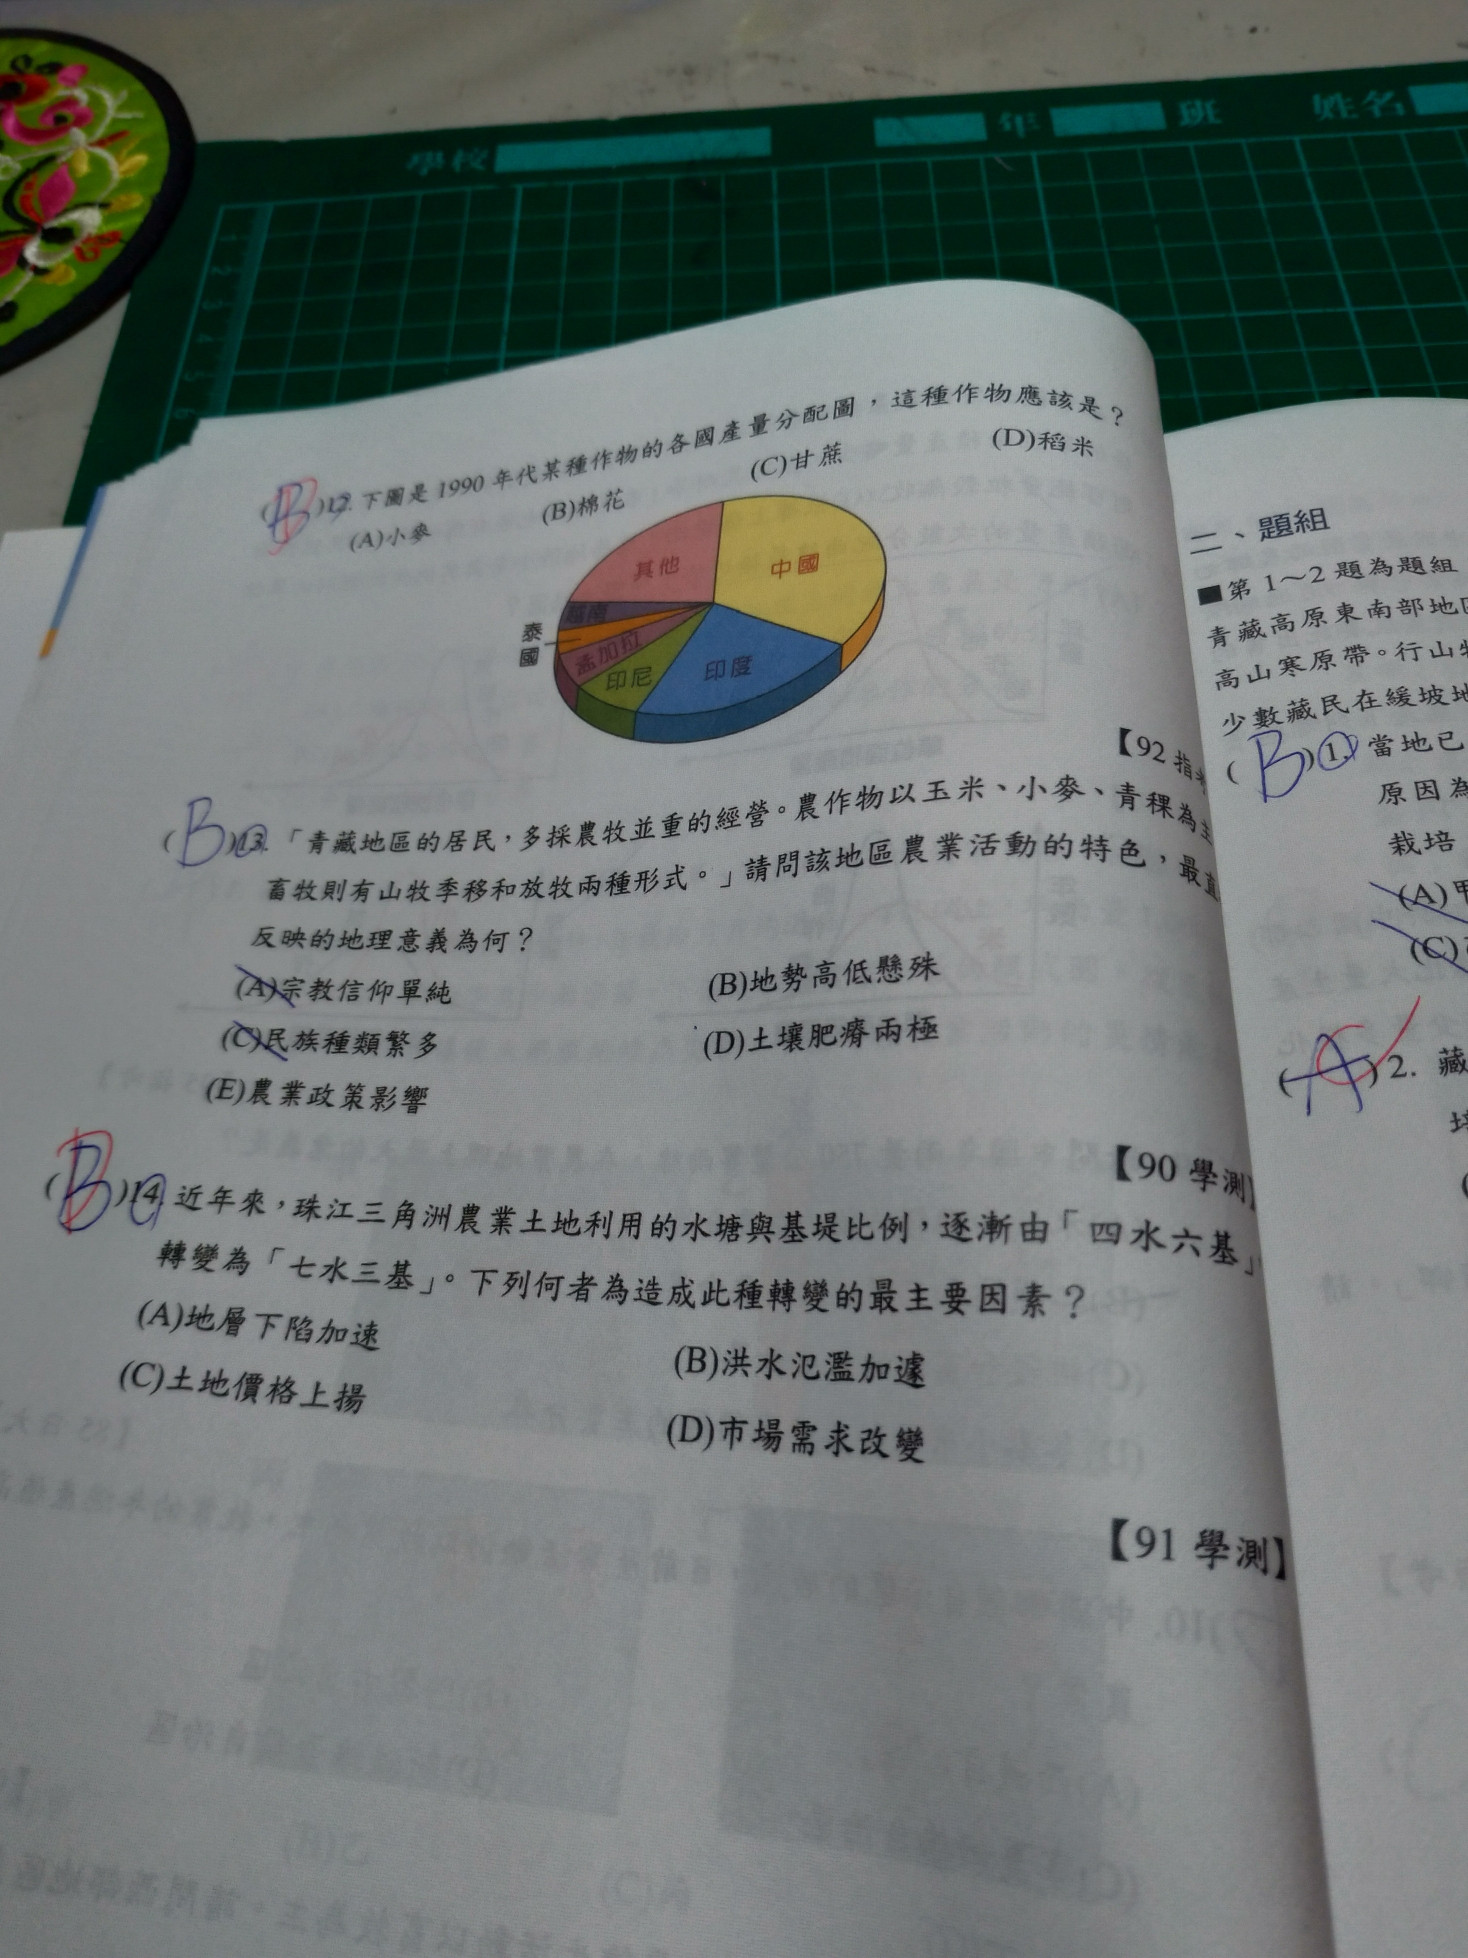 學校 年 班 姓名
(B)12.下圖是1990年代某種作物的各國產量分配圖，這種作物應該是？
(A)小麥 (B)棉花 (C)甘蔗 (D)稻米
其他
中國
越南
泰國
孟加拉
印尼
印度
【92 指
(B)13.「青藏地區的居民，多採農牧並重的經營。農作物以玉米、小麥、青稞為主
畜牧則有山牧季移和放牧兩種形式。」請問該地區農業活動的特色，最直
反映的地理意義為何？
(A)宗教信仰單純 (B)地勢高低懸殊
(C)民族種類繁多 (D)土壤肥瘠兩極
(E)農業政策影響
【90 學測】
(B)14.近年來，珠江三角洲農業土地利用的水塘與基堤比例，逐漸由「四水六基」
轉變為「七水三基」。下列何者為造成此種轉變的最主要因素？
(A)地層下陷加速 (B)洪水氾濫加遽
(C)土地價格上揚 (D)市場需求改變
【91 學測】
二、題組
■第 1～2 題為題組
青藏高原東南部地
高山寒原帶。行山
少數藏民在緩坡地
(B)1.當地已
原因為
栽培
(A)甲
(C)
(A)2.藏